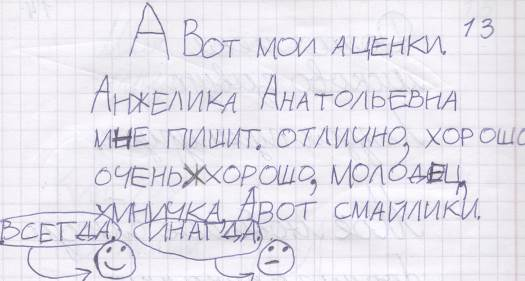 А Вот мои аценки. 13
Анжелика Анатольевна
мне пишит. отлично, хорошо
очень хорошо, молодец,
умничка, А вот смайлики.
всегда. инагда.